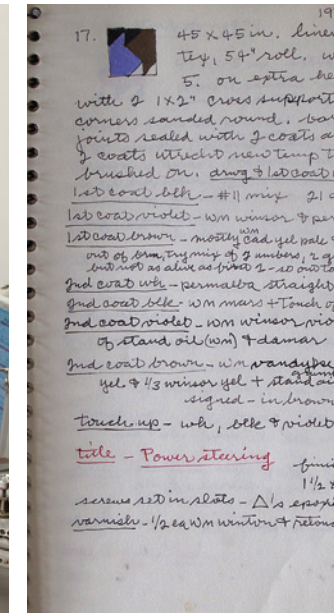 19
17. 45 x 45 in. linen
tex, 54" roll. w
5. on extra hea
with 2 1x2" cross support
corners sanded round. bar
joints sealed with 2 coats a
2 coats utrecht new temp t
brushed on. drwg & 1st coat
1st coat blk - #11 mix 21
1st coat violet - wn winsor & per
1st coat brown - mostly wn cad yel pale
out of brn, try mix of 2 umbers, 2 g
but not as alive as first 2 - so out to
2nd coat wh - permalba straight
2nd coat blk - wn mars + touch of
2nd coat violet - wn winsor vio
of stand oil (wn) & damar
2nd coat brown - wn vandyke
yel & 1/3 winsor yel + stand oil
signed - in brown
touch up - wh, blk & violet
title - Power steering
1 1/2 x
screws set in slots - △'s epoxi
varnish - 1/2 ea wn winton & retouc